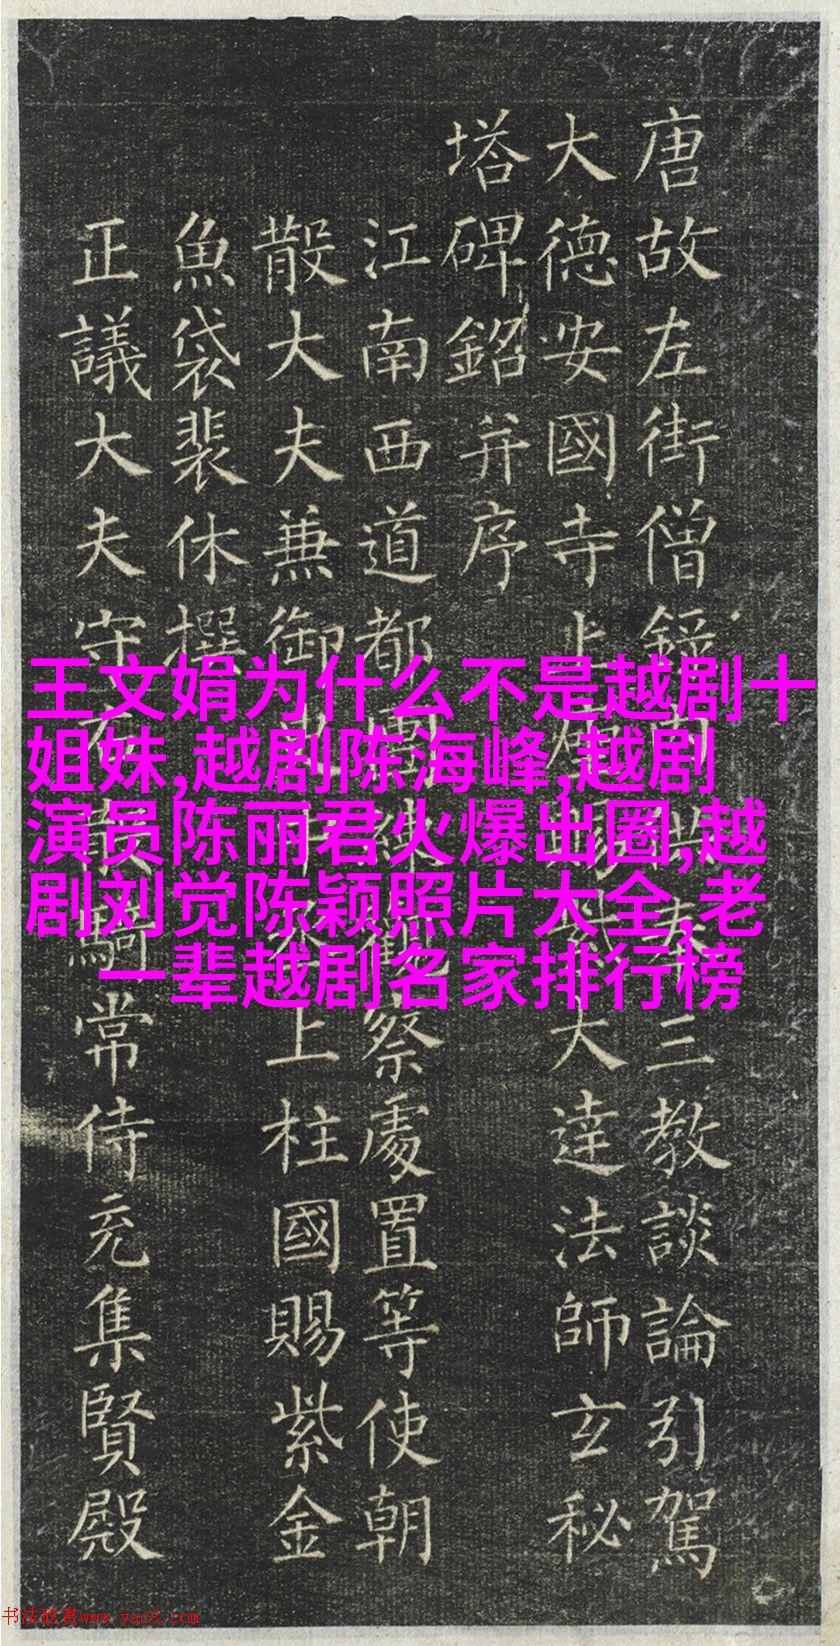 唐故左街僧錄內供奉三教談論引駕
大德安國寺上座賜紫大達法師玄秘
塔碑銘并序
江南西道都團練觀察處置等使朝
散大夫兼御史中丞上柱國賜紫金
魚袋裴休撰
正議大夫守右散騎常侍充集賢殿
王文娟为什么不是越剧十
姐妹,越剧陈海峰,越剧
演员陈丽君火爆出圈,越
剧刘觉陈颖照片大全,老
一辈越剧名家排行榜
书法欣赏www.yac8.com